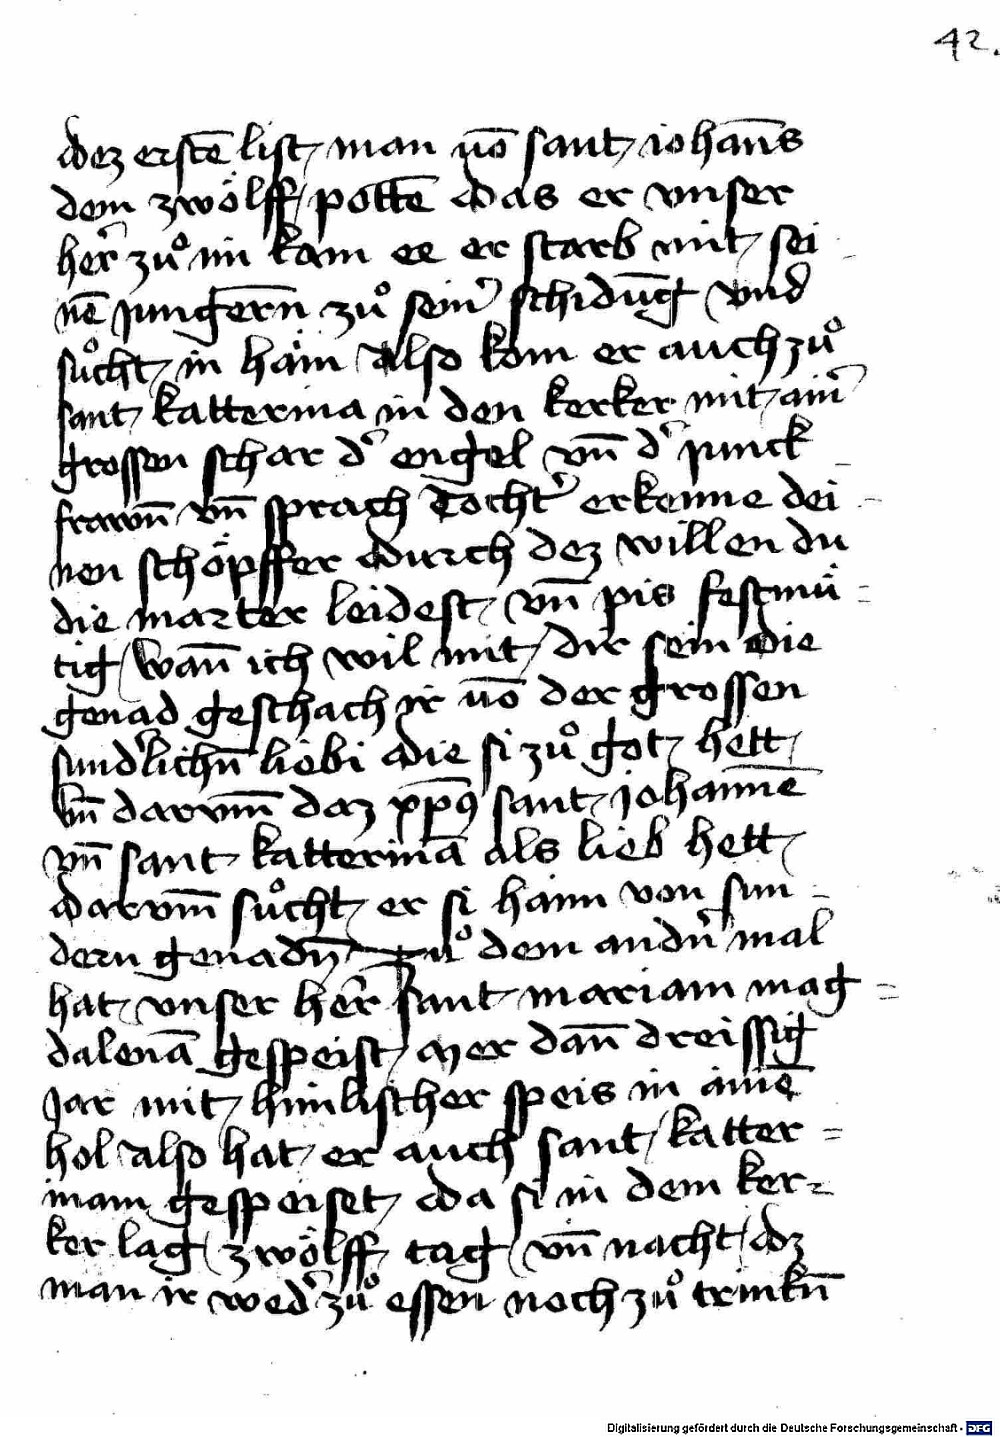 42.
dez erstē list man vō sant iohan̄s
dem zwölff pottē das er vnser
her̄ zů im kam ee er starb mit sei
nē jungern̄ zů sein̉ schidūg vnd
sůcht in häim also kom er auch zů
sant katterina in den kerker mit ain̉
grossen schar d̉ engel vn̄ d̉ junck
frawn̄ vn̄ sprach Tocht̉ erkenne dei
nen schöpffer durch dez willen du
die marter leidest vn̄ pis festmü
tig wan̄ ich wil mit dir sein die
genad geschach ir vō der grossen
sund̉lichn̄ liebi die si zů got hett
vn̄ darvm̄ daz xp̄ꝰ sant johannē
vn̄ sant katterinā als lieb hett
darvm̄ sůcht er si haim von sun
dern genadn̄ zů dem andn̉ mal
hat vnser her̄ sant mariam mag
dalenā gespeist mer dan̄ dreissig
jar mit himlischer speis in aimē
hol also hat er auch sant katter
inam gespeiset da si in dem ker
ker lag zwölff tag vn̄ nacht dz
man ir wed̉ zů essen noch zů trinkn̄
Digitalisierung gefördert durch die Deutsche Forschungsgemeinschaft - DFG